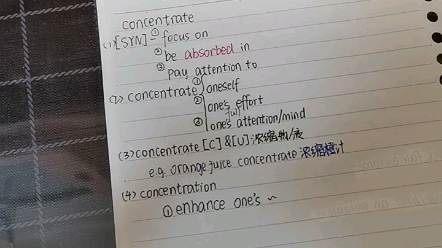 concentrate
(1) [SYN] ① focus on
② be absorbed in
③ pay attention to
(2) concentrate ① oneself
② one's effort
③ one's attention/mind
(3) concentrate [C] & [U] 浓缩物/液
e.g. orange juice concentrate 浓缩橙汁
(4) concentration
① enhance one's ~